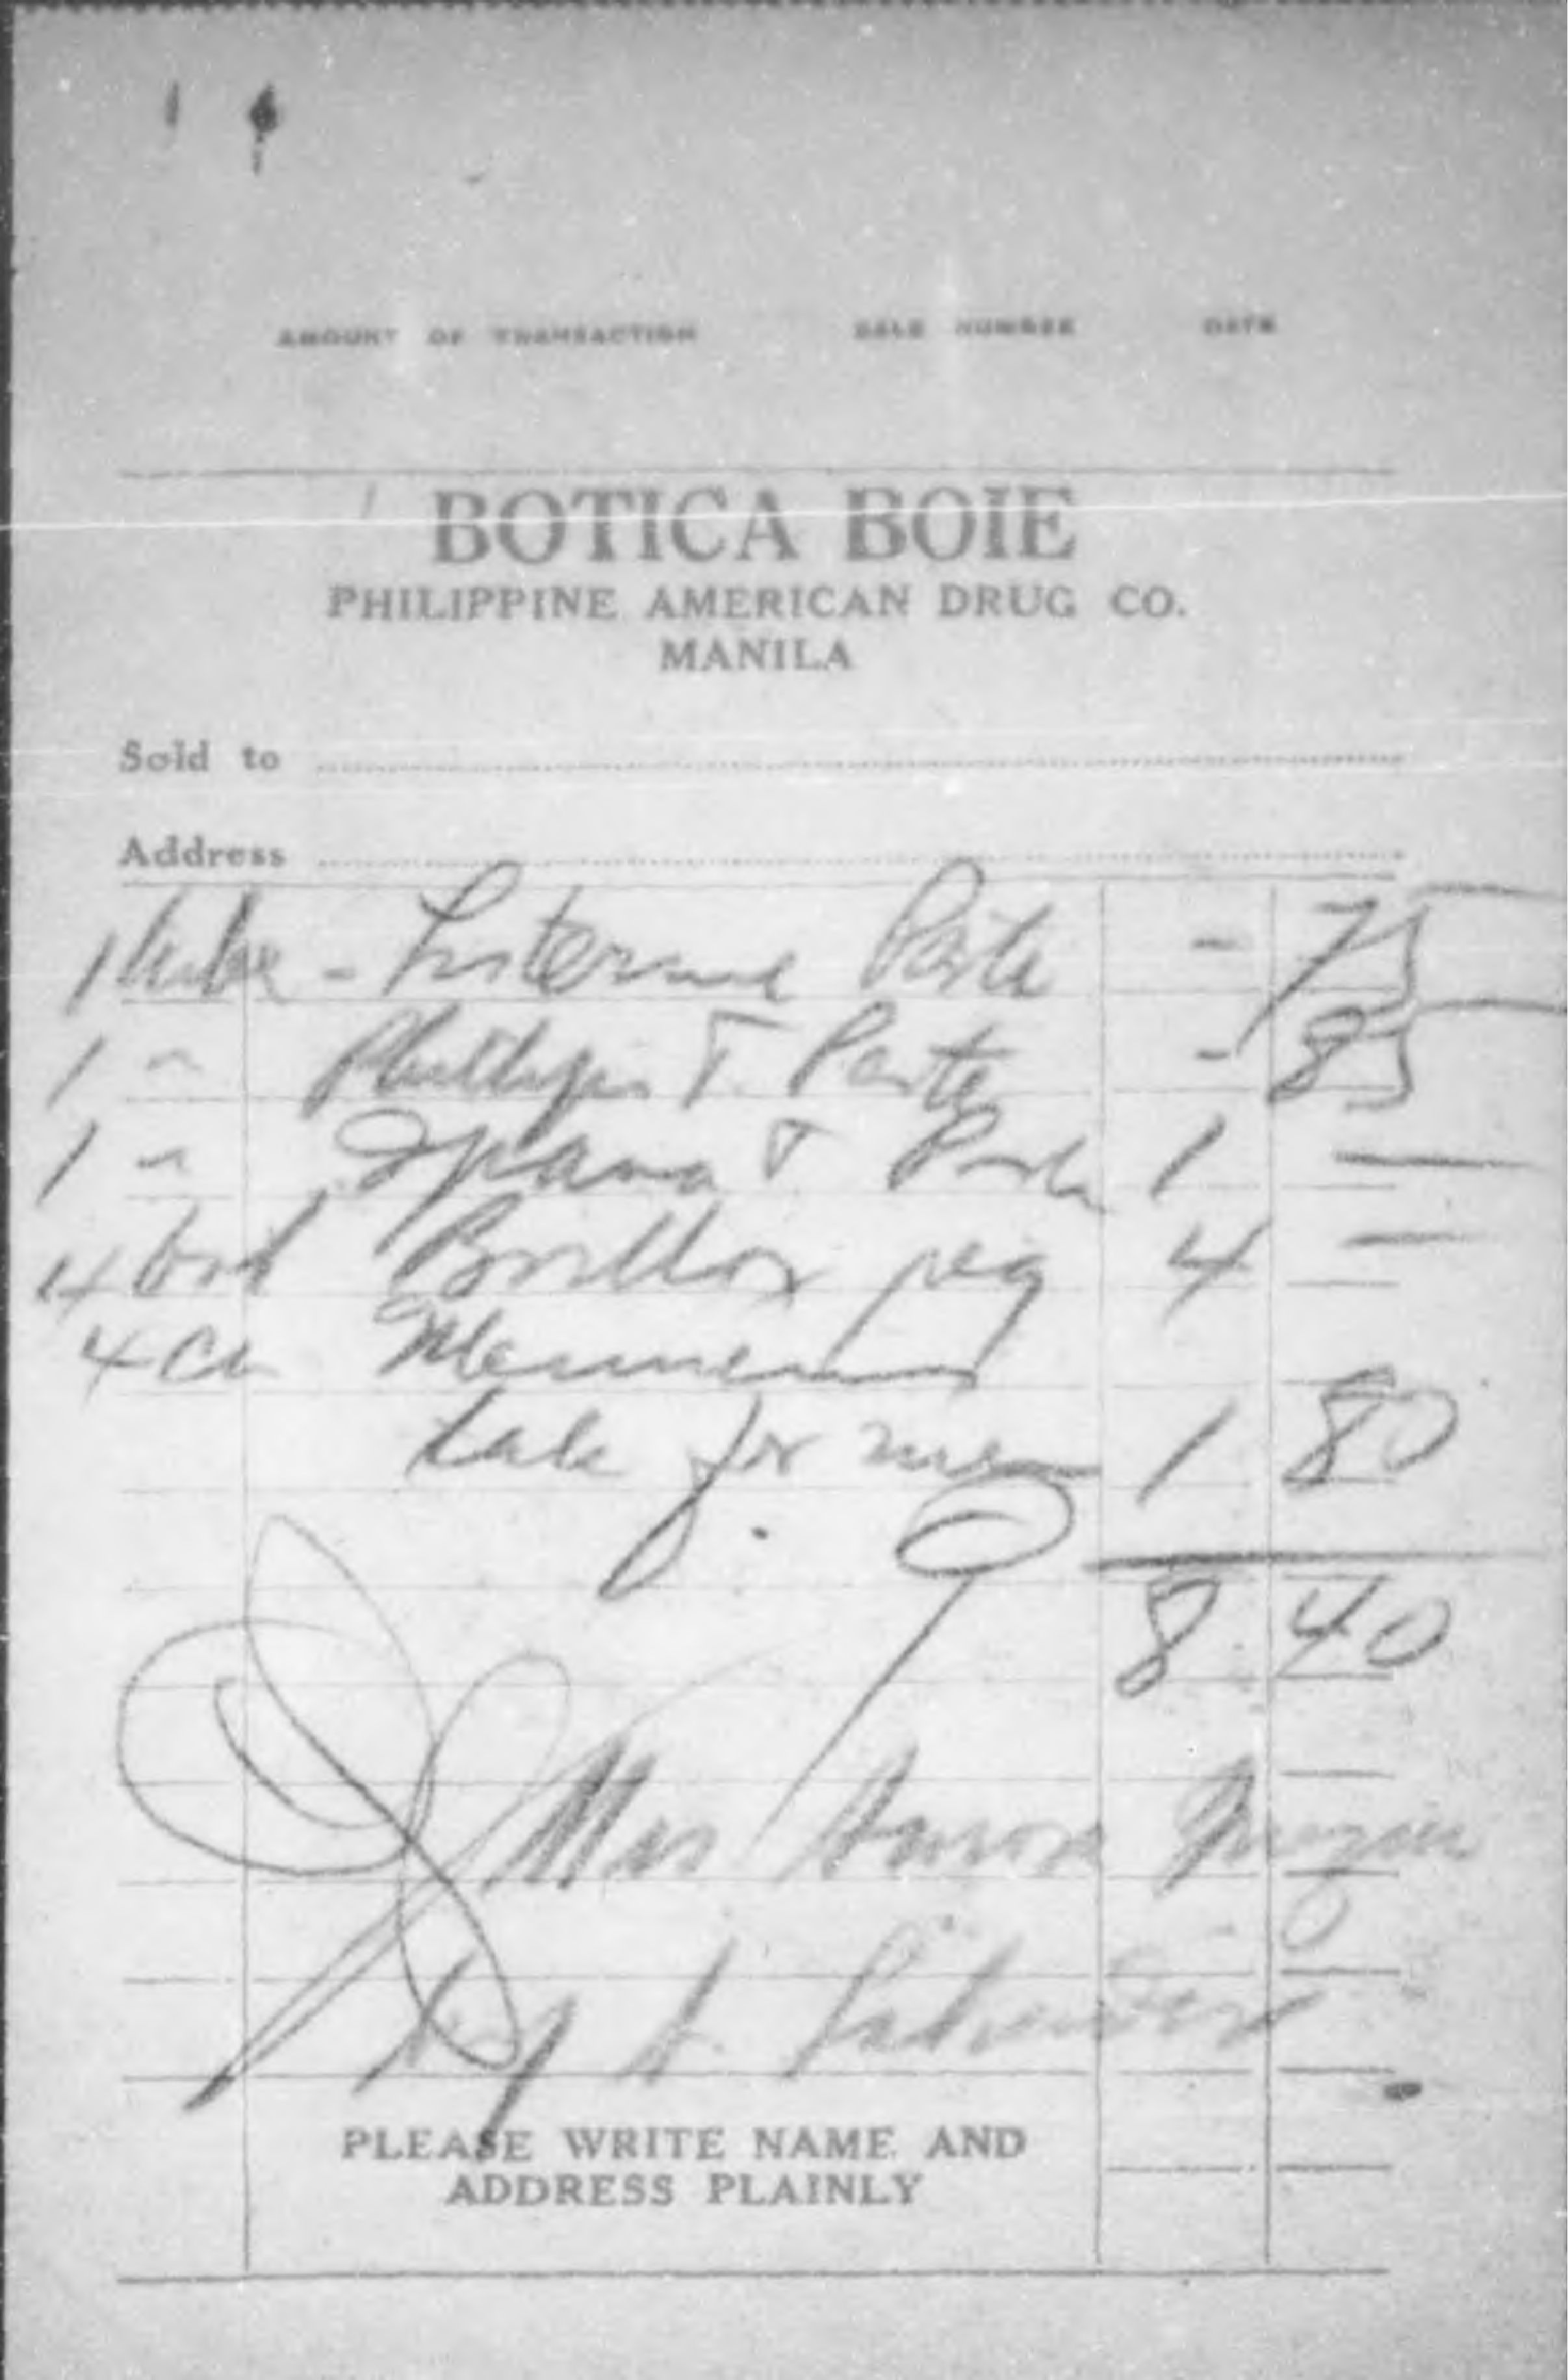 AMOUNT OF TRANSACTION SALE NUMBER DATE
BOTICA BOIE
PHILIPPINE AMERICAN DRUG CO.
MANILA
Sold to
Address
1 tube - Listerine Paste - 75
1 " Phillips T. Paste - 85
1 " Ipana T Paste 1 —
4 4 —
4 Mennen
talc for men 1 80
8.40
Mrs Aurora
by A.
PLEASE WRITE NAME AND
ADDRESS PLAINLY